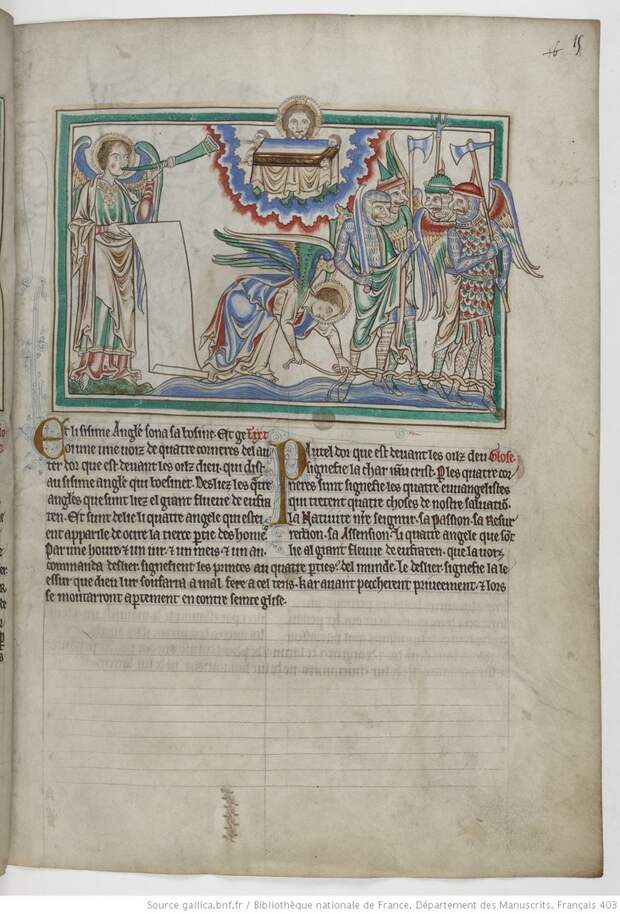 +6 15
Et li sisime Angle sona sa bosine. Et ge Text
oi une uoiz de quatre corneres del au
ter dor que est deuant les oilz dieu. qui dist
au sisime angle qui boesinet. Desliez les qtre
angles que sunt liez el grant flueue de eufra
ten. Et sunt deslie li quatre angele qui estei
ent apparile de occire la tierce ptie des home
Par une houre & un iur. & un meis & un an
Plutel dor que est deuant les oilz dieu Glose
signefie la char crist. P les quatre cor
neres sunt signefie les quatre euuangelistes
qui tretent quatre choses de nostre saluatio
la Natiuite nre seignur. sa Passion. sa Resur
rection. sa Assension. li quatre angele que sot
lie al grant fleuue de eufraten. que la uoiz
commanda deslier. signefient les princes au quatre pties del munde. le deslier. signefie la le
essur que dieu lur soufarra a mal fere a cel tens. kar auant peccherent priueement. & lors
se monstrront aptement encontre seinte glise.
Source gallica.bnf.fr / Bibliothèque nationale de France. Département des Manuscrits. Français 403